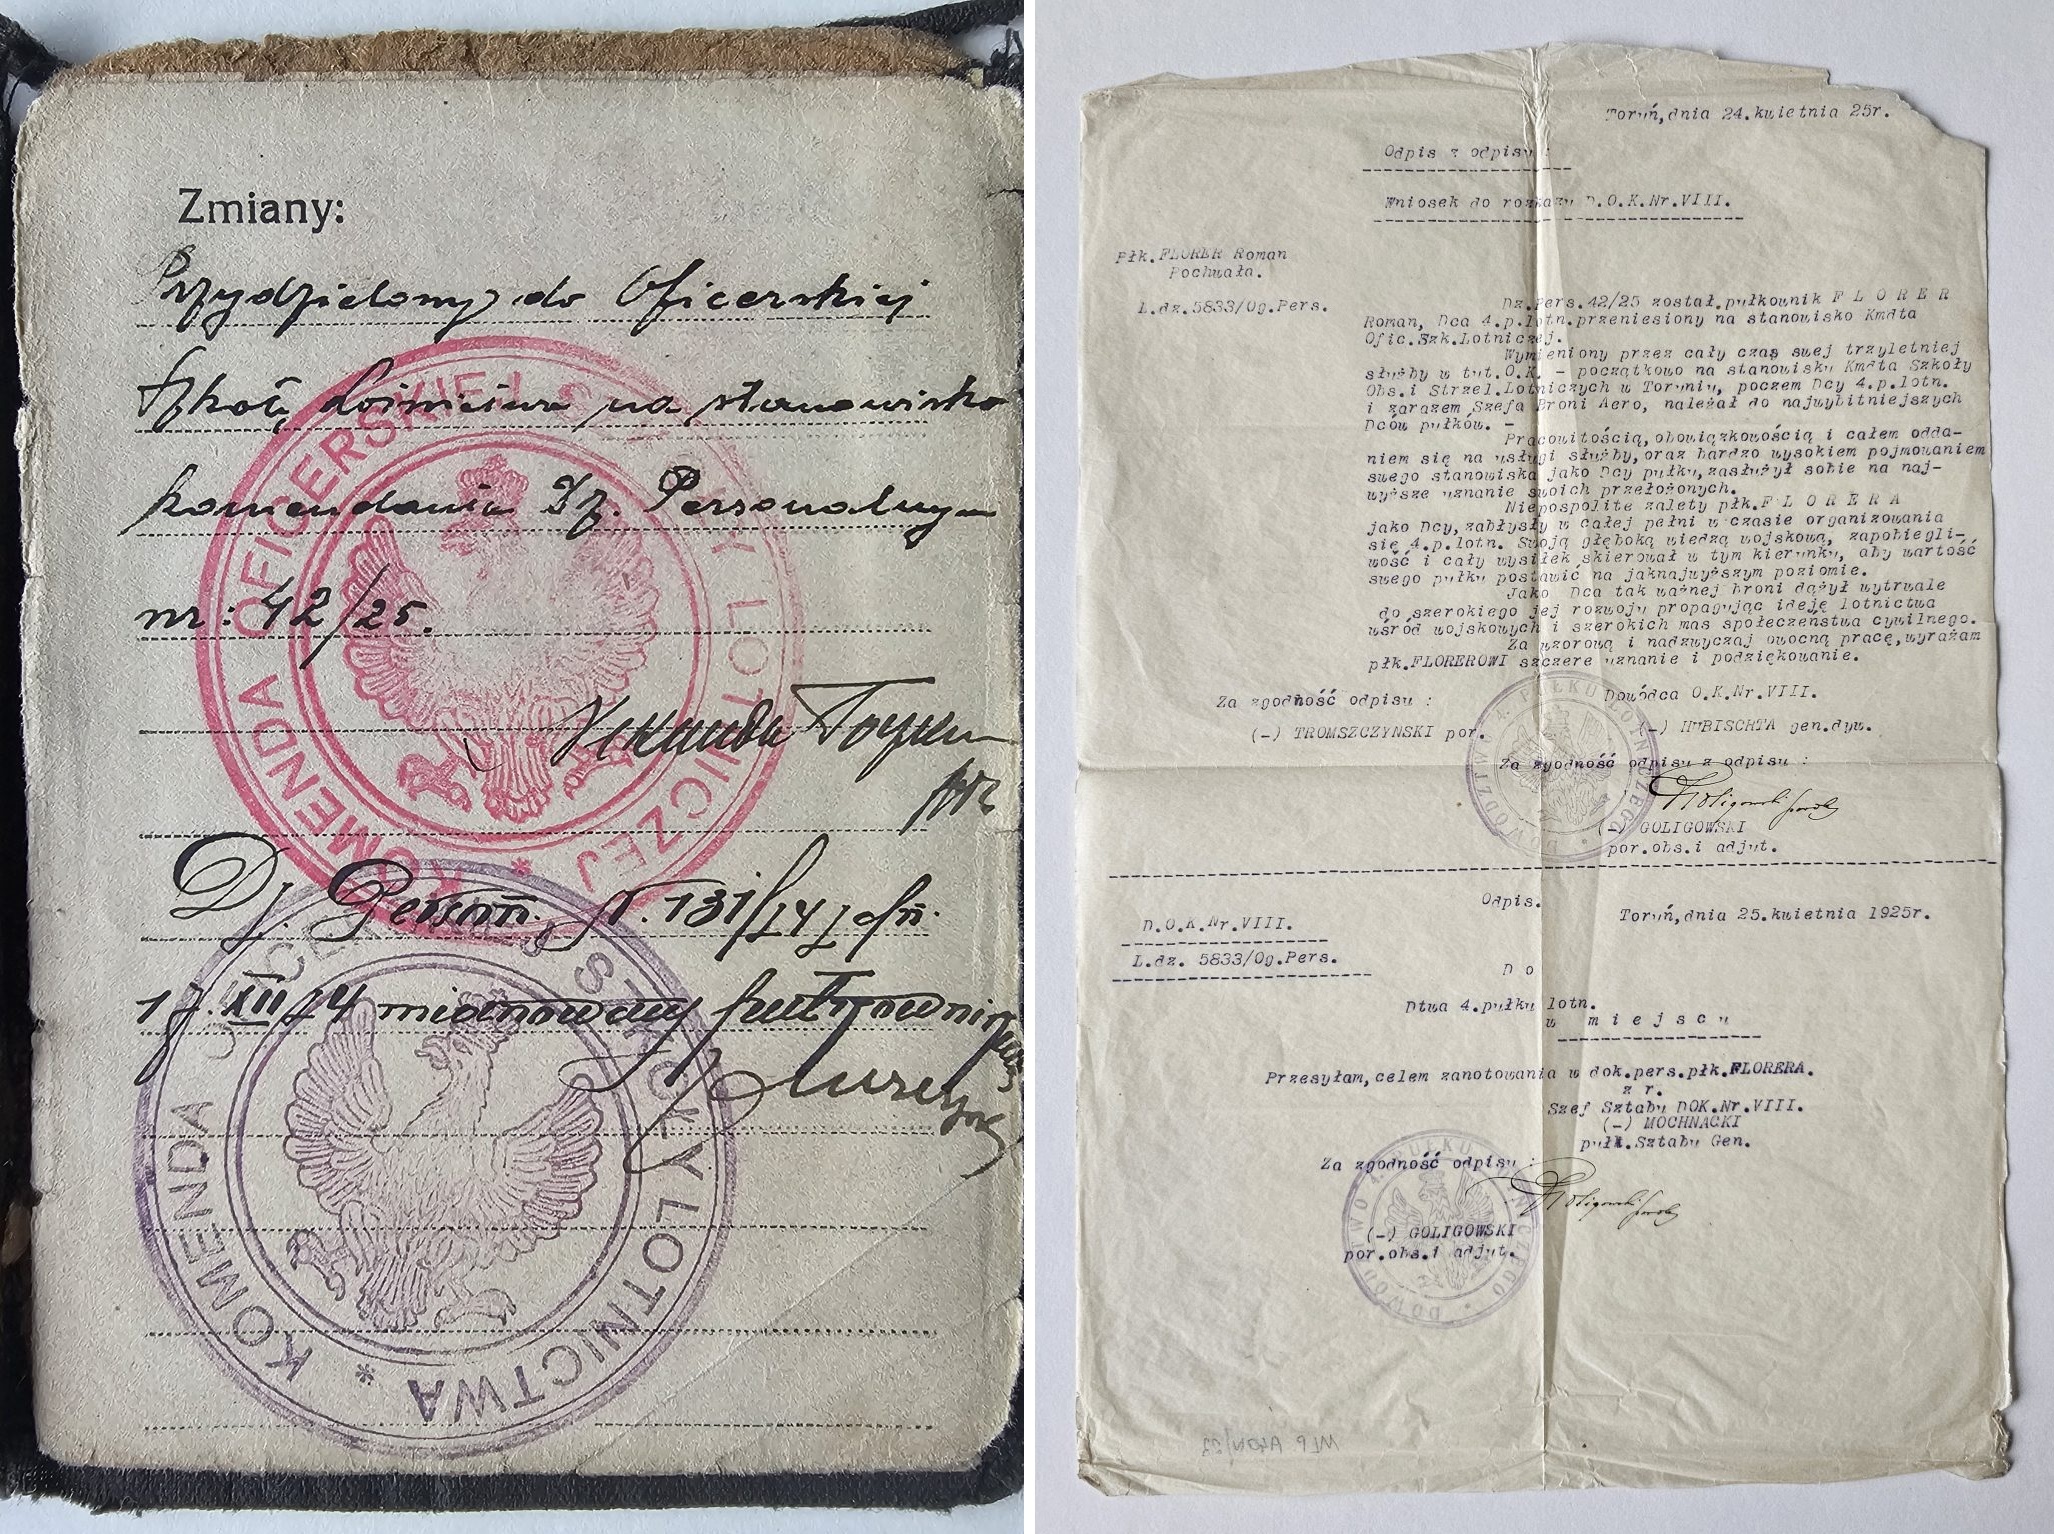 Zmiany:
Przydzielony do Oficerskiej
Szkoły Lotnictwa na stanowisko
komendanta Dz. Personalnym
nr: 42/25.
Dz. Person. 131/24 z dn.
17.XII 24 mianowany pułkownikiem
KOMENDA OFICERSKIEJ SZKOŁY LOTNICZEJ *
KOMENDA OFICERSKIEJ SZKOŁY LOTNICTWA *
Toruń,dnia 24.kwietnia 25r.
Odpis z odpisu :
Wniosek do rozkazu D.O.K.Nr.VIII.
Płk.FLORER Roman
Pochwała.
L.dz.5833/Og.Pers.
Dz.Pers.42/25 został pułkownik F L O R E R
Roman, Dca 4.p.lotn.przeniesiony na stanowisko Kmdta
Ofic.Szk.Lotniczej.
Wymieniony przez cały czas swej trzyletniej
służby w tut.O.K. - początkowo na stanowisku Kmdta Szkoły
Obs.i Strzel.Lotniczych w Toruniu, poczem Dcy 4.p.lotn.
i zarazem Szefa Broni Aero, należał do najwybitniejszych
Dców pułków. -
Pracowitością,obowiązkowością i całem odda-
niem się na usługi służby,oraz bardzo wysokiem pojmowaniem
swego stanowiska jako Dcy pułku,zasłużył sobie na naj-
wyższe uznanie swoich przełożonych.
Niepospolite zalety płk.F L O R E R A
jako Dcy,zabłysły w całej pełni w czasie organizowania
się 4.p.lotn. Swoją głęboką wiedzą wojskową, zapobiegli-
wość i cały wysiłek skierował w tym kierunku, aby wartość
swego pułku postawić na jaknajwyższym poziomie.
Jako Dca tak ważnej broni dążył wytrwale
do szerokiego jej rozwoju propagując ideję lotnictwa
wśród wojskowych i szerokich mas społeczeństwa cywilnego.
Za wzorową i nadzwyczaj owocną pracę,wyrażam
płk.FLOREROWI szczere uznanie i podziękowanie.
Za zgodność odpisu :
Dowódca O.K.Nr.VIII.
(-) TROMSZCZYNSKI por.
(-) HUBISCHTA gen.dyw.
Za zgodność odpisu z odpisu :
(-) GOLIGOWSKI
por.obs.i adjut.
DOWÓDZTWO 4. PUŁKU LOTNICZEGO
Odpis.
D.O.K.Nr.VIII.
Toruń,dnia 25.kwietnia 1925r.
L.dz. 5833/Og.Pers.
D o
Dtwa 4.pułku lotn.
w m i e j s c u
Przesyłam,celem zanotowania w dok.pers.płk.FLORERA.
z r.
Szef Sztabu DOK.Nr.VIII.
(-) MOCHNACKI
pułk.Sztabu Gen.
Za zgodność odpisu :
(-) GOLIGOWSKI
por.obs.i adjut.
DOWÓDZTWO 4. PUŁKU LOTNICZEGO